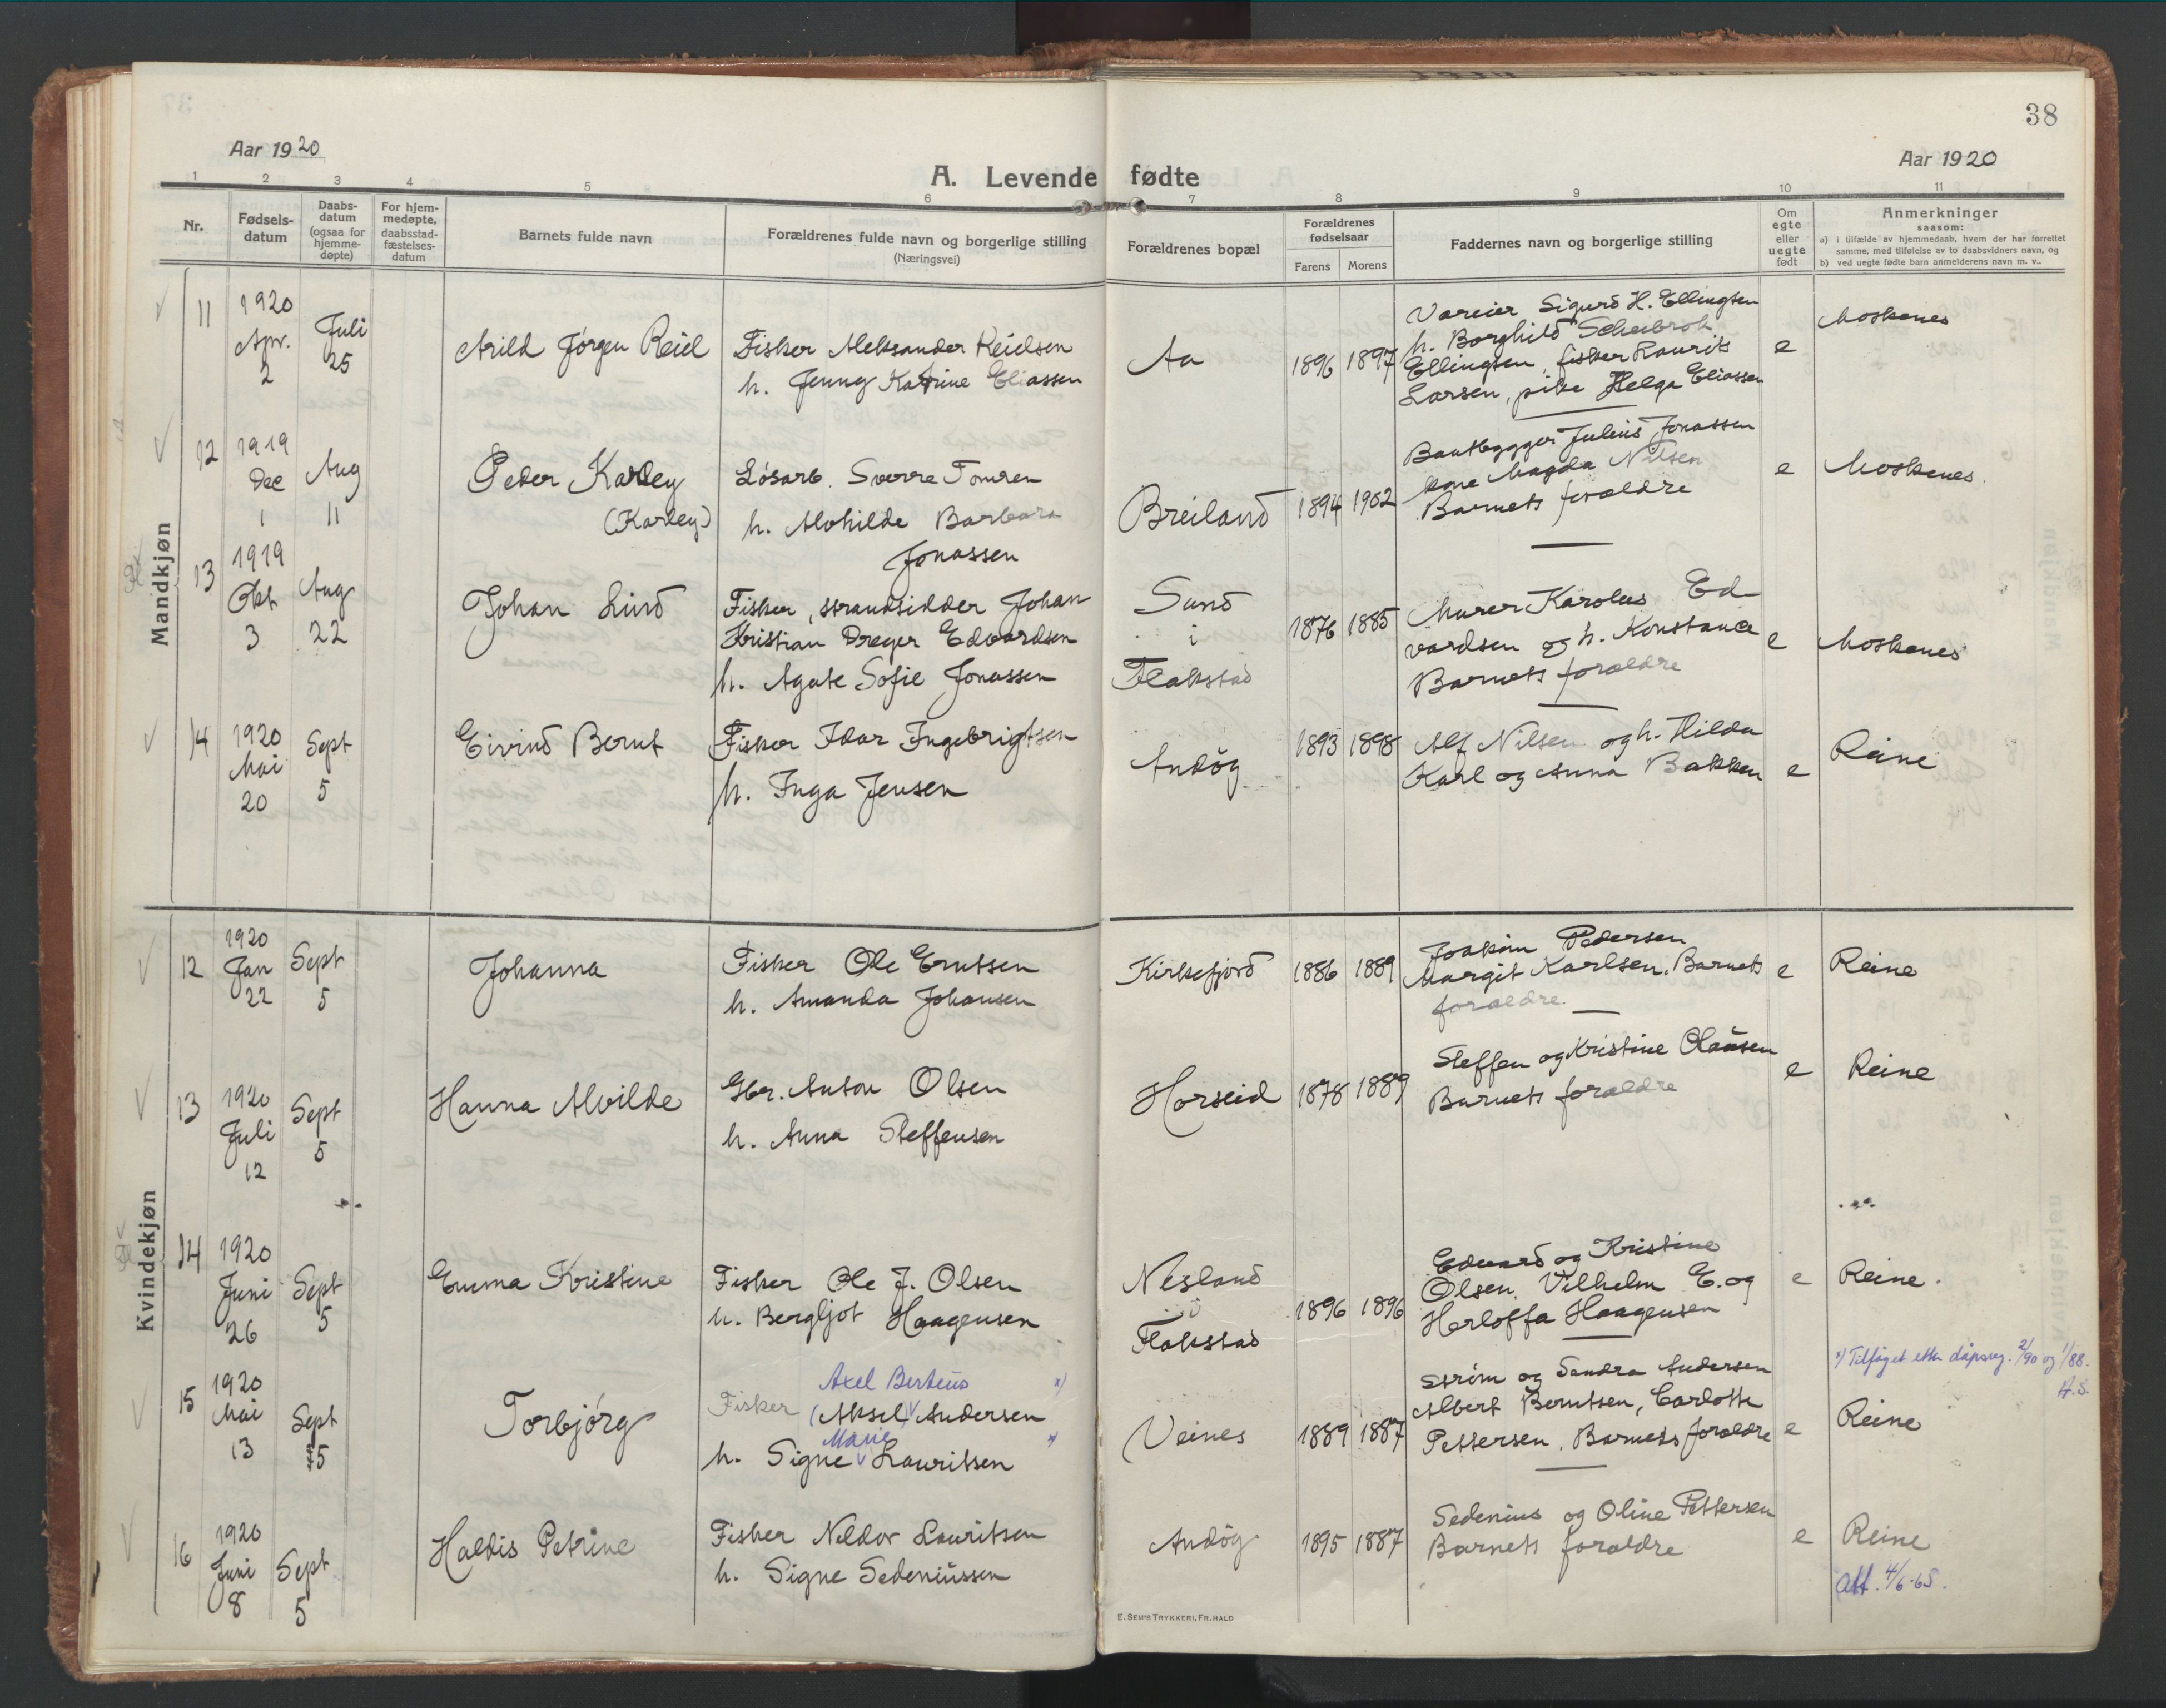 38
Aar 1920
Aar 1920
A. Levende fødte
1 2 3 4 5 6 7 8 9 10 11
Nr.
Fødsels-
datum
Daabs-
datum
(ogsaa for
hjemme-
døpte)
For hjem-
medøpte,
daabsstad-
fæstelses-
datum
Barnets fulde navn
Forældrenes fulde navn og borgerlige stilling
(Næringsvei)
Forældrenes bopæl
Forældrenes
fødselsaar
Farens Morens
Faddernes navn og borgerlige stilling
Om
egte
eller
uegte
født
Anmerkninger
saasom:
a) i tilfælde av hjemmedaab, hvem der har forrettet
samme, med tilføielse av to daabsvidners navn, og
b) ved uegte fødte barn anmelderens navn m. v..
Mandkjøn
11
1920
Apr.
2
Juli
25
Arild Jörgen Reiel
Fisker Aleksander Reielsen
h. Jenny Katrine Eliassen
Aa
1896 1897
Vareier Sigurd H. Ellingsen
h. Borghild
Ellingsen, fisker Laurits
Larsen, pike Helga Eliassen
e
Moskenes
12
1919
Dec
1
Aug
11
Peder Karley
(Karley)
Lösarb. Sverre Tomren
h. Alvhilde Barbara
Jonassen
Breiland
1894 1902
Baatbygger Julius Jonassen
kone Magda Nilsen
Barnets foraeldre
e
Moskenes.
13
1919
Okt
3
Aug
22
Johan Lind
Fisker, strandsidder Johan
Kristian Dreyer Edvardsen
h. Agate Sofie Jonassen
Sund
i
Flakstad
1876 1885
Murer Karolus Ed-
vardsen og h. Konstance
Barnets foraeldre
e
Moskenes
14
1920
Mai
20
Sept
5
Eivind Bernt
Fisker Idar Ingebrigtsen
h. Inga Jensen
Andög
1893 1898
Alf Nilsen og h. Hilda
Karl og Anna Bakken
e
Reine
Kvindekjøn
12
1920
Jan
22
Sept
5
Johanna
Fisker Ole Erntsen
h. Amanda Johansen
Kirkefjord
1886 1889
Joakim Pedersen
Margit Karlsen. Barnets
foraeldre.
e
Reine
13
1920
Juli
12
Sept
5
Hanna Alvilde
Gbr. Anton Olsen
h. Anna Steffensen
Horseid
1878 1889
Steffen og Kristine Olausen
Barnets foraeldre
e
Reine
14
1920
Juni
26
Sept
5
Emma Kristine
Fisker Ole J. Olsen
h. Bergljot Haagensen
Nesland
i
Flakstad
1896 1896
Edvard og Kristine
Olsen, Vilhelm E. og
Herloffa Haagensen
e
Reine.
15
1920
Mai
13
Sept
5
Torbjörg
Axel Berteus x)
Fisker (Aksel) Andersen
Marie x)
h. Signe Lauritsen
Veines
1889 1887
og Sandra Andersen
Albert Berntsen, Carlotte
Pettersen, Barnets foraeldre
e
x) Tilføyet etter dåpsreg. 2/90 og 1/88.
A.S.
Reine
16
1920
Juni
8
Sept
5
Haldis Petrine
Fisker Neldor Lauritsen
h. Signe Sedeniussen
Andög
1895 1887
Sedenius og Oline Pettersen
Barnets foraeldre
e
Reine
Att. 4/6-65.
E. SEM'S TRYKKERI, FR.HALD